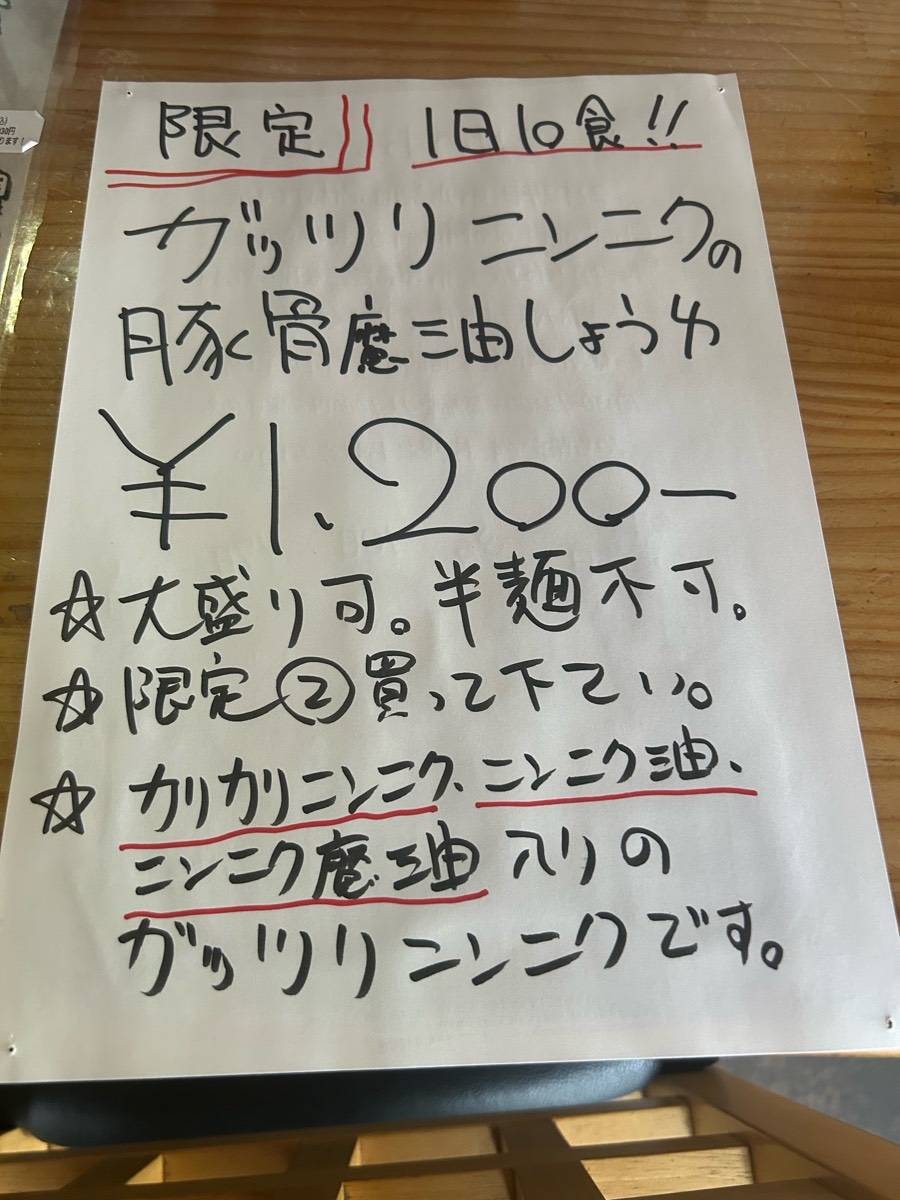 限定!! 1日10食!!
ガッツリニンニクの
豚骨魔油しょうゆ
¥1.200ー
☆大盛り可。半麺不可。
☆限定②買って下てい。
☆カリカリニンニク、ニンニク油、
ニンニク魔油入りの
ガッツリニンニクです。